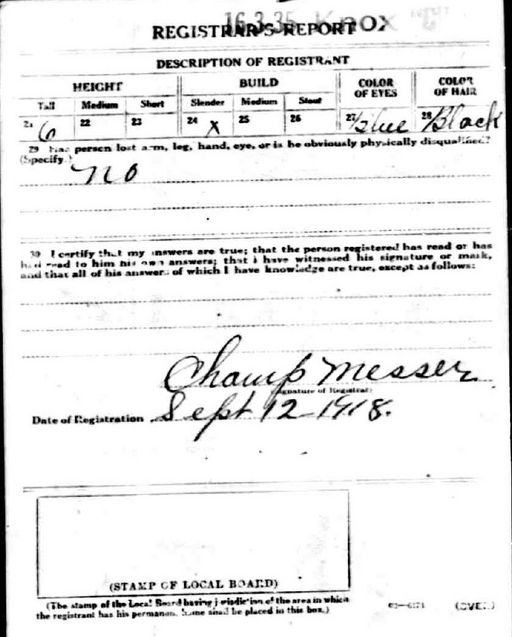 16-3-35 Knox "C"
REGISTRAR'S REPORT
DESCRIPTION OF REGISTRANT
HEIGHT BUILD COLOR OF EYES COLOR OF HAIR
Tall Medium Short Slender Medium Stout
21 6 22 23 24 x 25 26 27 blue 28 Black
29 Has person lost arm, leg, hand, eye, or is he obviously physically disqualified?
(Specify.) no
30 I certify that my answers are true; that the person registered has read or has
had read to him his own answers; that I have witnessed his signature or mark,
and that all of his answers of which I have knowledge are true, except as follows:
Champ Messer
(Signature of Registrar)
Date of Registration Sept 12-1918.
(STAMP OF LOCAL BOARD)
(The stamp of the Local Board having jurisdiction of the area in which
the registrant has his permanent home shall be placed in this box.)
03-6171 (OVER)